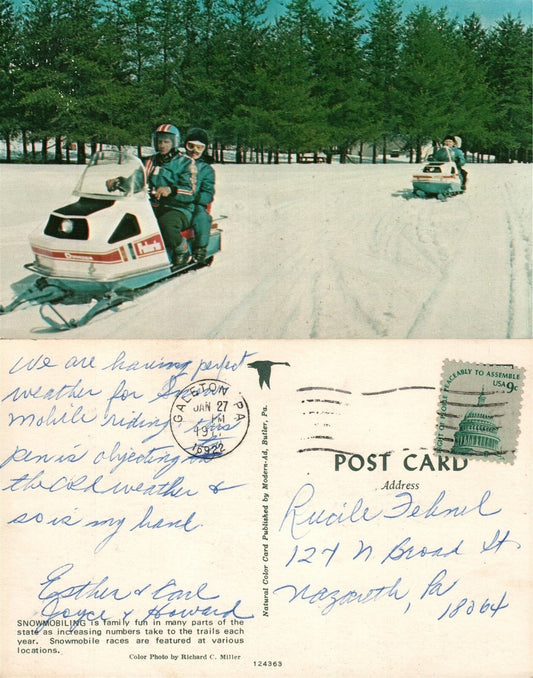 Polaris
We are having perfect
weather for Snow
Mobile riding this
pen is objecting to
the cold weather &
so is my hand.
Esther & Earl
Joyce & Howard
SNOWMOBILING is family fun in many parts of the
state as increasing numbers take to the trails each
year. Snowmobile races are featured at various
locations.
Color Photo by Richard C. Miller
124363
GALETON PA
JAN 27
PM
16922
Natural Color Card Published by Modern-Ad, Butler, Pa.
RIGHT OF PEOPLE PEACEABLY TO ASSEMBLE
USA 9c
POST CARD
Address
Lucile Fehnel
127 N Broad St.
Nazareth, Pa
18064